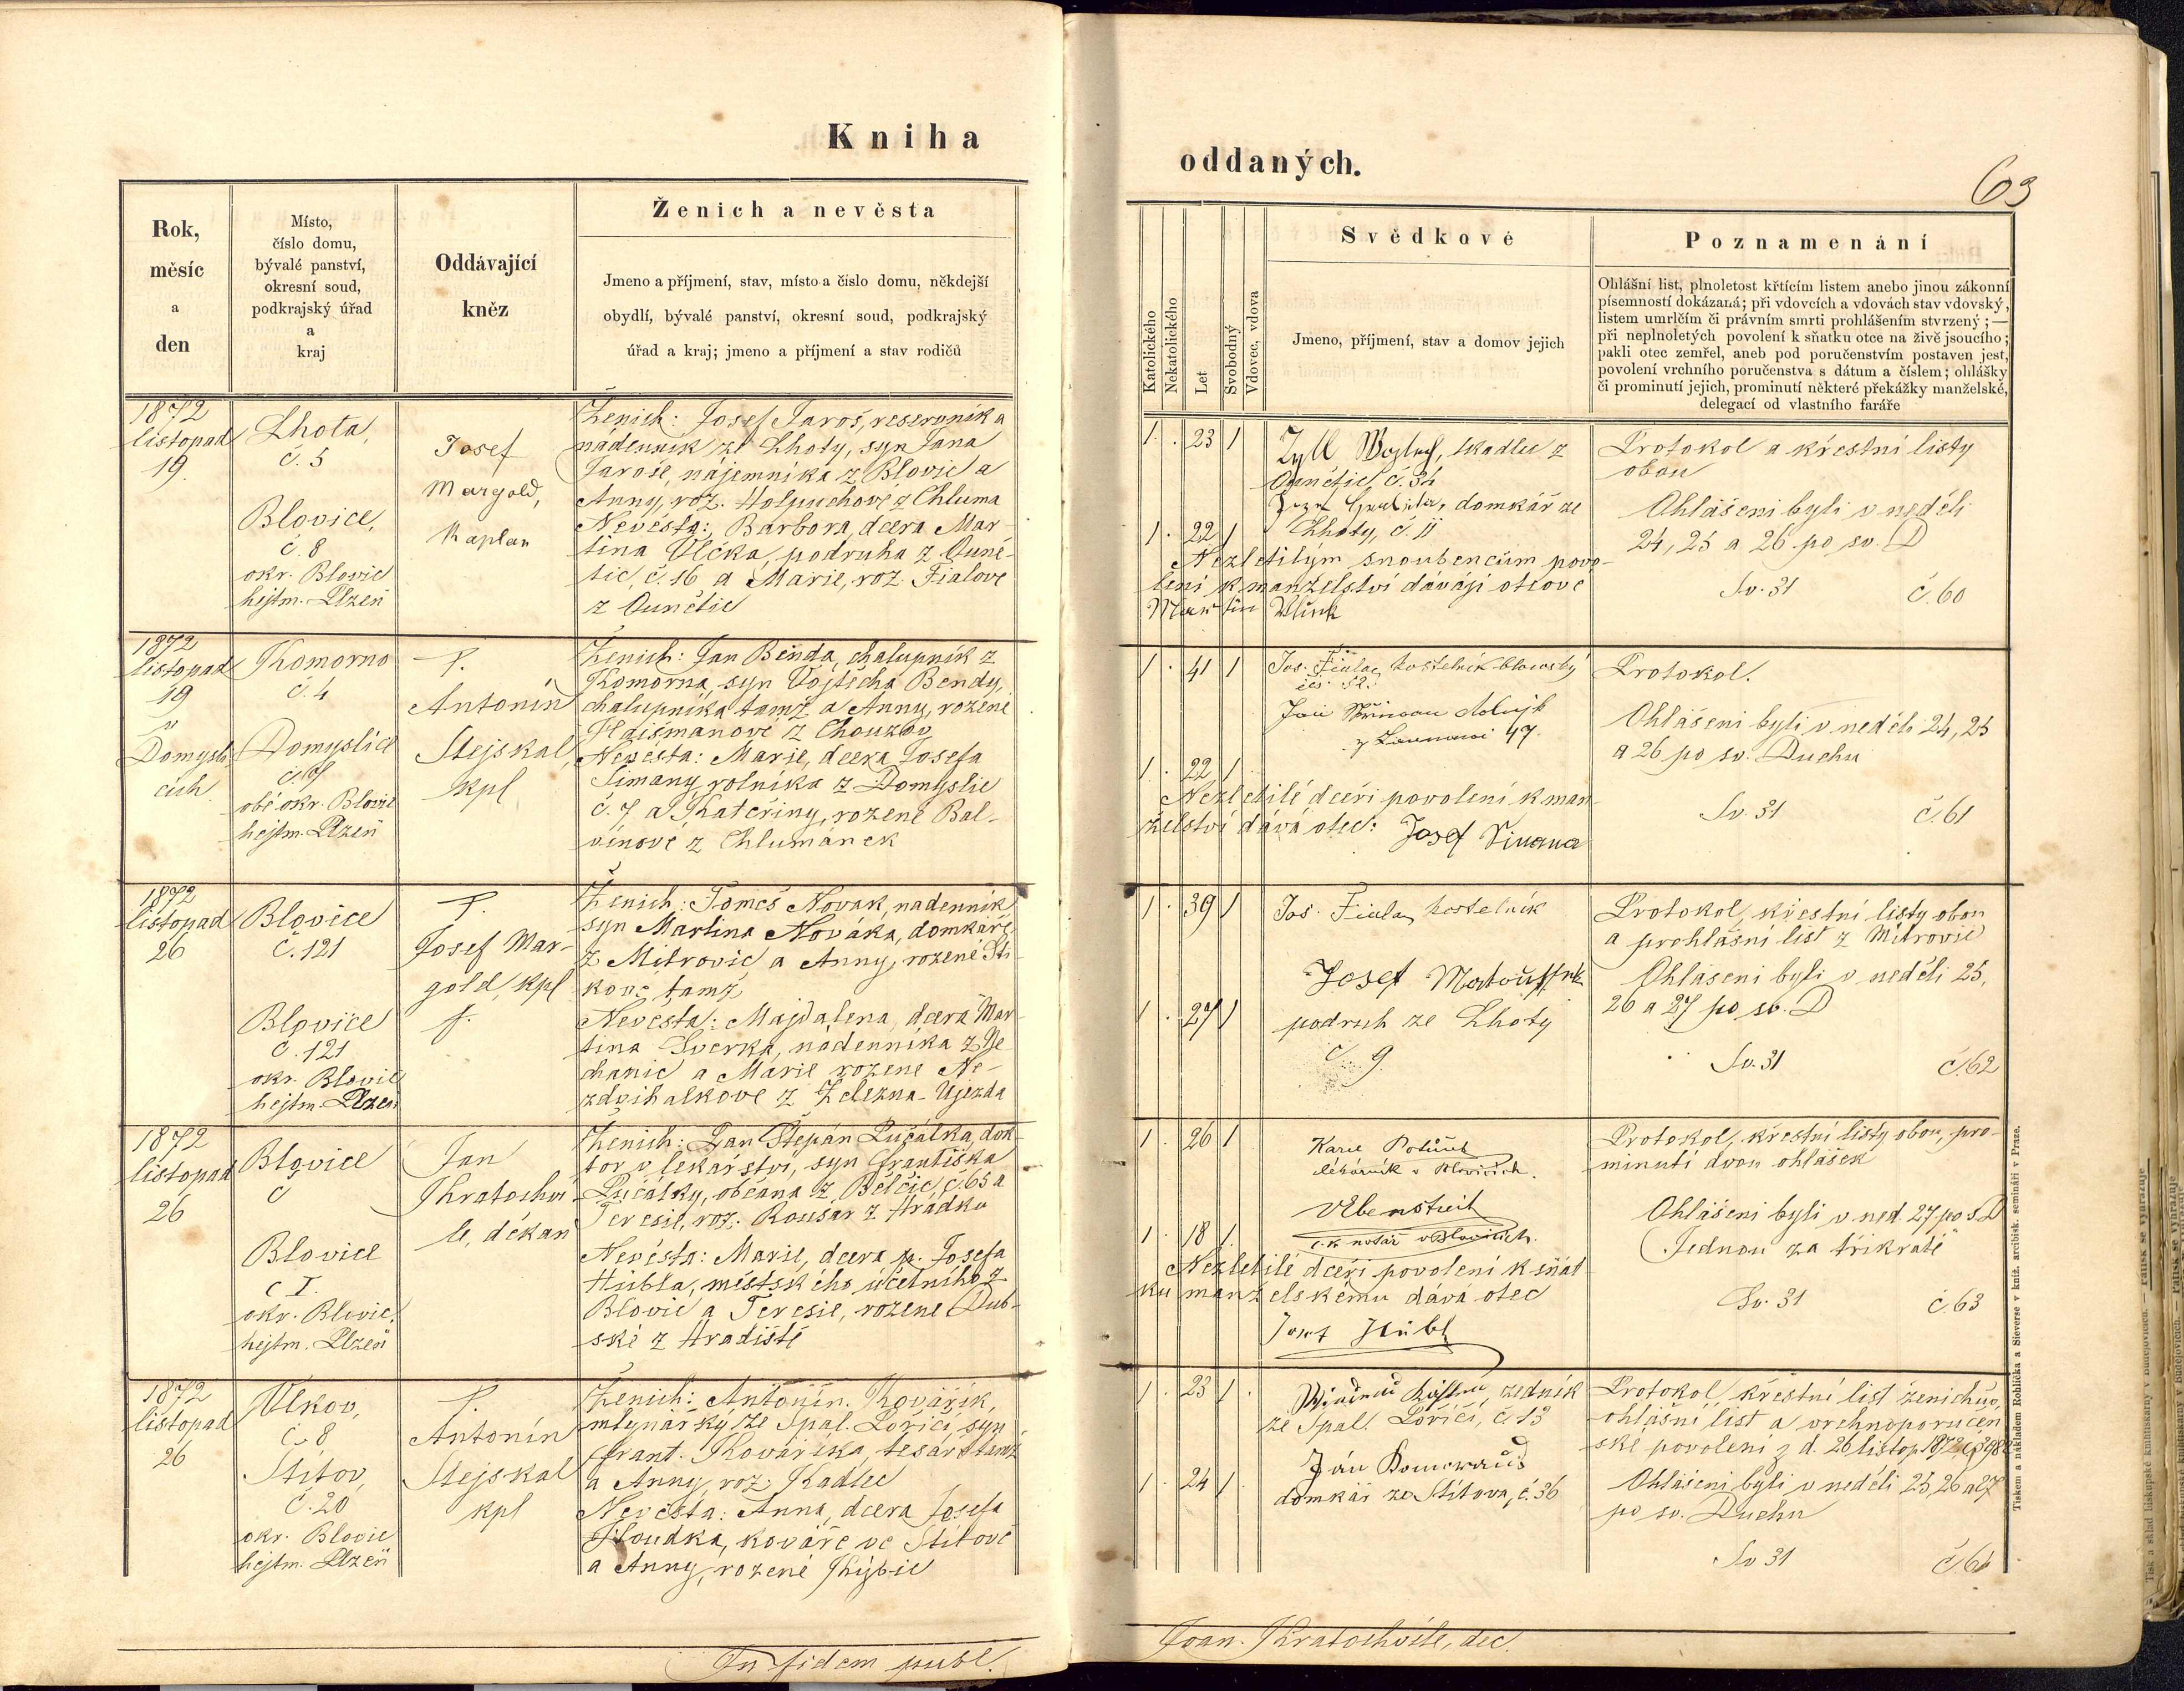 Kniha
Rok,
měsíc
a
den
Místo,
číslo domu,
bývalé panství,
okresní soud,
podkrajský úřad
a
kraj
Oddávající
kněz
Ženich a nevěsta
Jmeno a příjmení, stav, místo a číslo domu, někdejší
obydlí, bývalé panství, okresní soud, podkrajský
úřad a kraj; jmeno a příjmení a stav rodičů
1872
listopad
19.
Lhota,
č. 5
Blovice,
č. 8
okr. Blovic
hejtm. Plzeň
Josef
Margold,
kaplan
Ženich: Josef Jaroš, reservník a
nádenník ze Lhoty, syn Jana
Jaroše, nájemníka z Blovic a
Anny, roz. Holpuchové z Chluma
Nevěsta: Barbora, dcera Mar-
tina Vlčka, podruha z Ouně-
tic, č. 16 a Marie, roz. Fialové
z Ounětic
1872
listopad
19
v
Domysli
cích
Komorno
č. 4
Domyslice
č. 7
obé okr. Blovic
hejtm. Plzeň
P.
Antonín
Stejskal,
kpl
Ženich: Jan Benda, chalupník z
Komorna, syn Vojtěcha Bendy,
chalupníka tamž a Anny, rozené
Hajšmanové z Chouzov
Nevěsta: Marie, dcera Josefa
Šimany, rolníka z Domyslic
č. 7 a Kateřiny, rozené Bal-
vínové z Chlumánek
1872
listopad
26
Blovice
č. 121
Blovice
č. 121
okr. Blovic
hejtm. Plzeň
P.
Josef Mar-
gold, kpl
Ženich: Tomeš Novák, nádenník
syn Martina Nováka, domkáře
z Mitrovic a Anny, rozené Sti-
kové tamž
Nevěsta: Majdalena, dcera Mar-
tina Sverka, nádenníka z Ne-
chanic a Marie rozené Ne-
zdvihalkové z Železna-Ujezda
1872
listopad
26
Blovice
č
Blovice
č I.
okr. Blovic,
hejtm. Plzeň
Jan
Kratochví
le, děkan
Ženich: Jan Štěpán Pučálka, dok-
tor v lékařství, syn Františka
Pučálky, občana z Bělčic, č. 65 a
Teresie, roz. Rousar z Hrádku
Nevěsta: Marie, dcera p. Josefa
Hübla, městského účetního z
Blovic a Teresie, rozené Dub-
ské z Hradiště
1872
listopad
26
Vlkov,
č. 8
Štítov,
č. 20
okr. Blovic
hejtm. Plzeň
P.
Antonín
Stejskal
kpl
Ženich: Antonín Kovářík,
mlynářský ze Spal. Poříčí, syn
Frant. Kováříka, tesaře tamž
a Anny, roz. Kadlec
Nevěsta: Anna, dcera Josefa
Houdka, kováře ve Štítově
a Anny, rozené Kýbic
In fidem publ.
oddaných.
63
Katolického
Nekatolického
Let
Svobodný
Vdovec, vdova
Svědkové
Jmeno, příjmení, stav a domov jejich
Poznamenání
Ohlášní list, plnoletost křtícím listem anebo jinou zákonní
písemností dokázaná; při vdovcích a vdovách stav vdovský,
listem umrlčím či právním smrti prohlášením stvrzený; —
při neplnoletých povolení k sňatku otce na živě jsoucího;
pakli otec zemřel, aneb pod poručenstvím postaven jest,
povolení vrchního poručenstva s dátum a číslem; ohlášky
či prominutí jejich, prominutí některé překážky manželské,
delegací od vlastního faráře
1 . 23 1
tkadlec z
Ounětic č. 34
domkář ze
1 . 22 1 Lhoty, č. 11
Nezletilým snoubencům povo-
lení k manželství dávají otcové
Martin Vlček
Protokol a křestní listy
obou
Ohlášeni byli v neděli
24, 25 a 26. po sv. D
Sv. 31 č. 60
1 . 41 1 Jos. Fiala, kostelník blovický
1 . 22 1
Nezletilé dceři povolení k man-
želství dává otec: Josef Simana
Protokol.
Ohlášeni byli v neděli 24, 25
a 26 po sv. Duchu
Sv. 31 č. 61
1 . 39 1 Jos. Fiala, kostelník
Josef
1 . 27 1 podruh ze Lhoty
č. 9
Protokol, křestní listy obou
a prohlašní list z Mitrovic
Ohlášeni byli v neděli 25,
26 a 27 po sv. D
Sv. 31 č. 62
1 . 26 1 Karel
lékárník v Blovicích.
1 . 18 1 c. k. notář v Blovicích.
Nezletilé dceři povolení k sňat-
ku manželskému dává otec
Josef Hübl
Protokol, křestní listy obou, pro-
minutí dvou ohlášek
Ohlášeni byli v ned. 27 po s. D
Jednou za třikráte
Sv. 31 č. 63
1 . 23 1 . zedník
ze Spal. Poříčí, č. 13
Ján
1 . 24 1 domkář ze Štítova, č. 36
Protokol, křestní list ženichův,
ohlášní list a vrchnoporučen
ské povolení z d. 26 listop. 1872
Ohlášeni byli v neděli 25, 26 a 27
po sv. Duchu
Sv 31 č. 64
Joan. Kratochvíle, dec.
Tiskem a nákladem Rohlíčka a Sieverse v kníž. arcibisk. semináři v Praze.